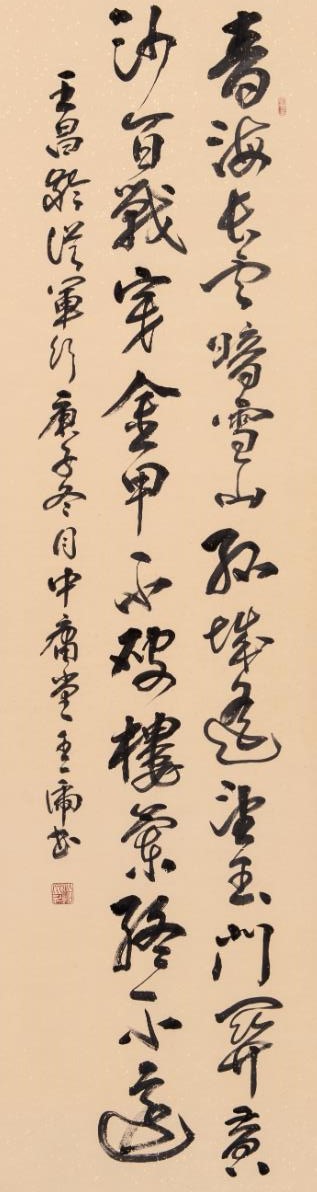 青海长云暗雪山孤城遥望玉门関黄
沙百戦穿金甲不破樓蘭終不還
王昌齡從軍行庚子冬月中庸堂王